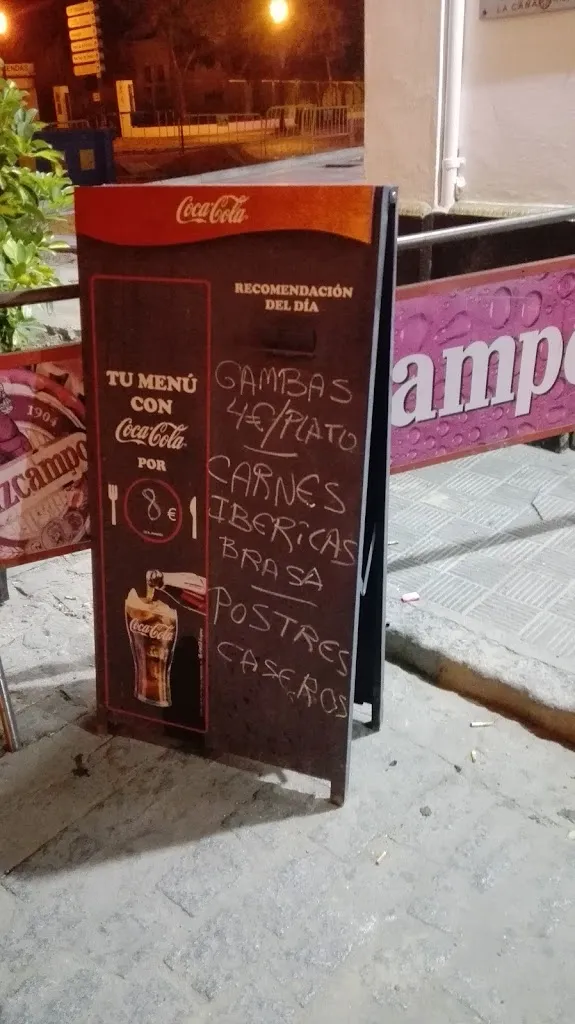 LA CAÑA
Coca-Cola
RECOMENDACIÓN
DEL DÍA
TU MENÚ
CON
Coca-Cola
POR
8 €
GAMBAS
4€/PLATO
CARNES
IBERICAS
BRASA
POSTRES
CASEROS
Coca-Cola
1904
zcampo
ampo